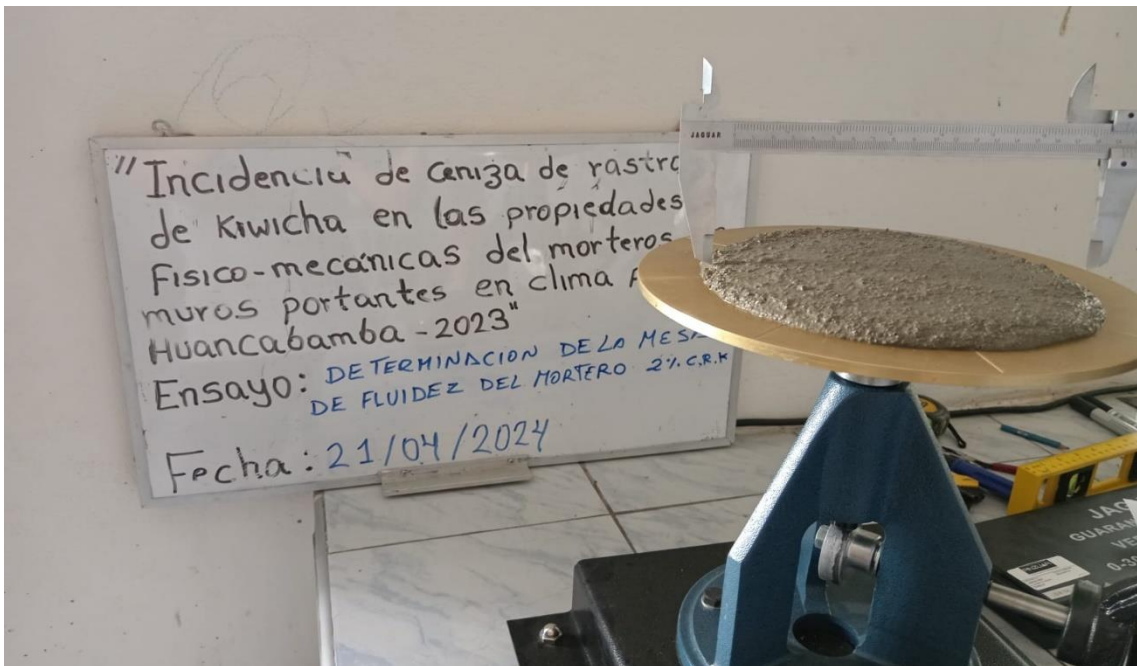 "Incidencia de ceniza de rastro
de Kiwicha en las propiedades
Fisico-mecánicas del morteros
muros portantes en clima
Huancabamba - 2023"
Ensayo: DETERMINACION DE LA MESA
DE FLUIDEZ DEL MORTERO 2% C.R.K
Fecha: 21/04/2024
JAGUAR